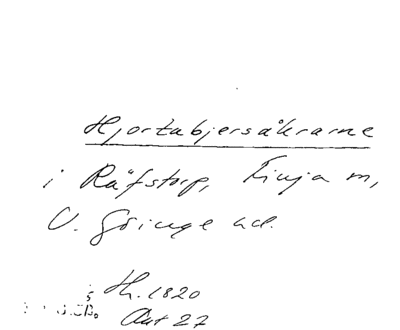 Hjortabjersåkrarne
i Räfstorp, Finja m,
V. Göinge hd.
Th. 1820
Akt 27